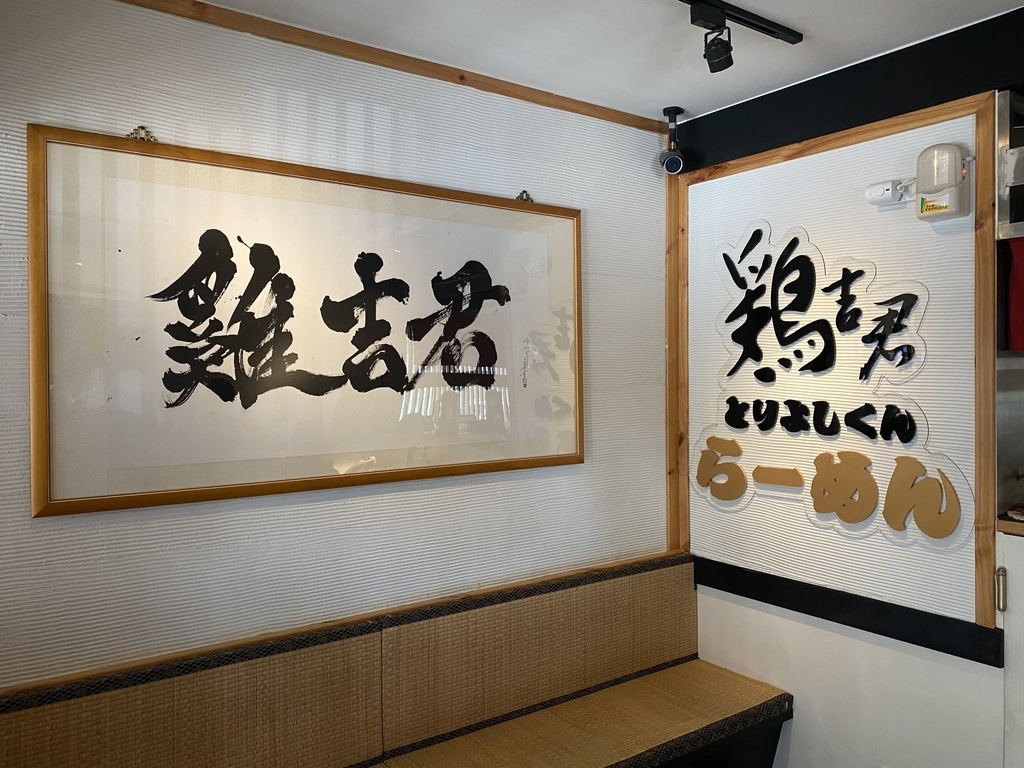 雞吉君
鶏吉君
とりよしくん
らーめん